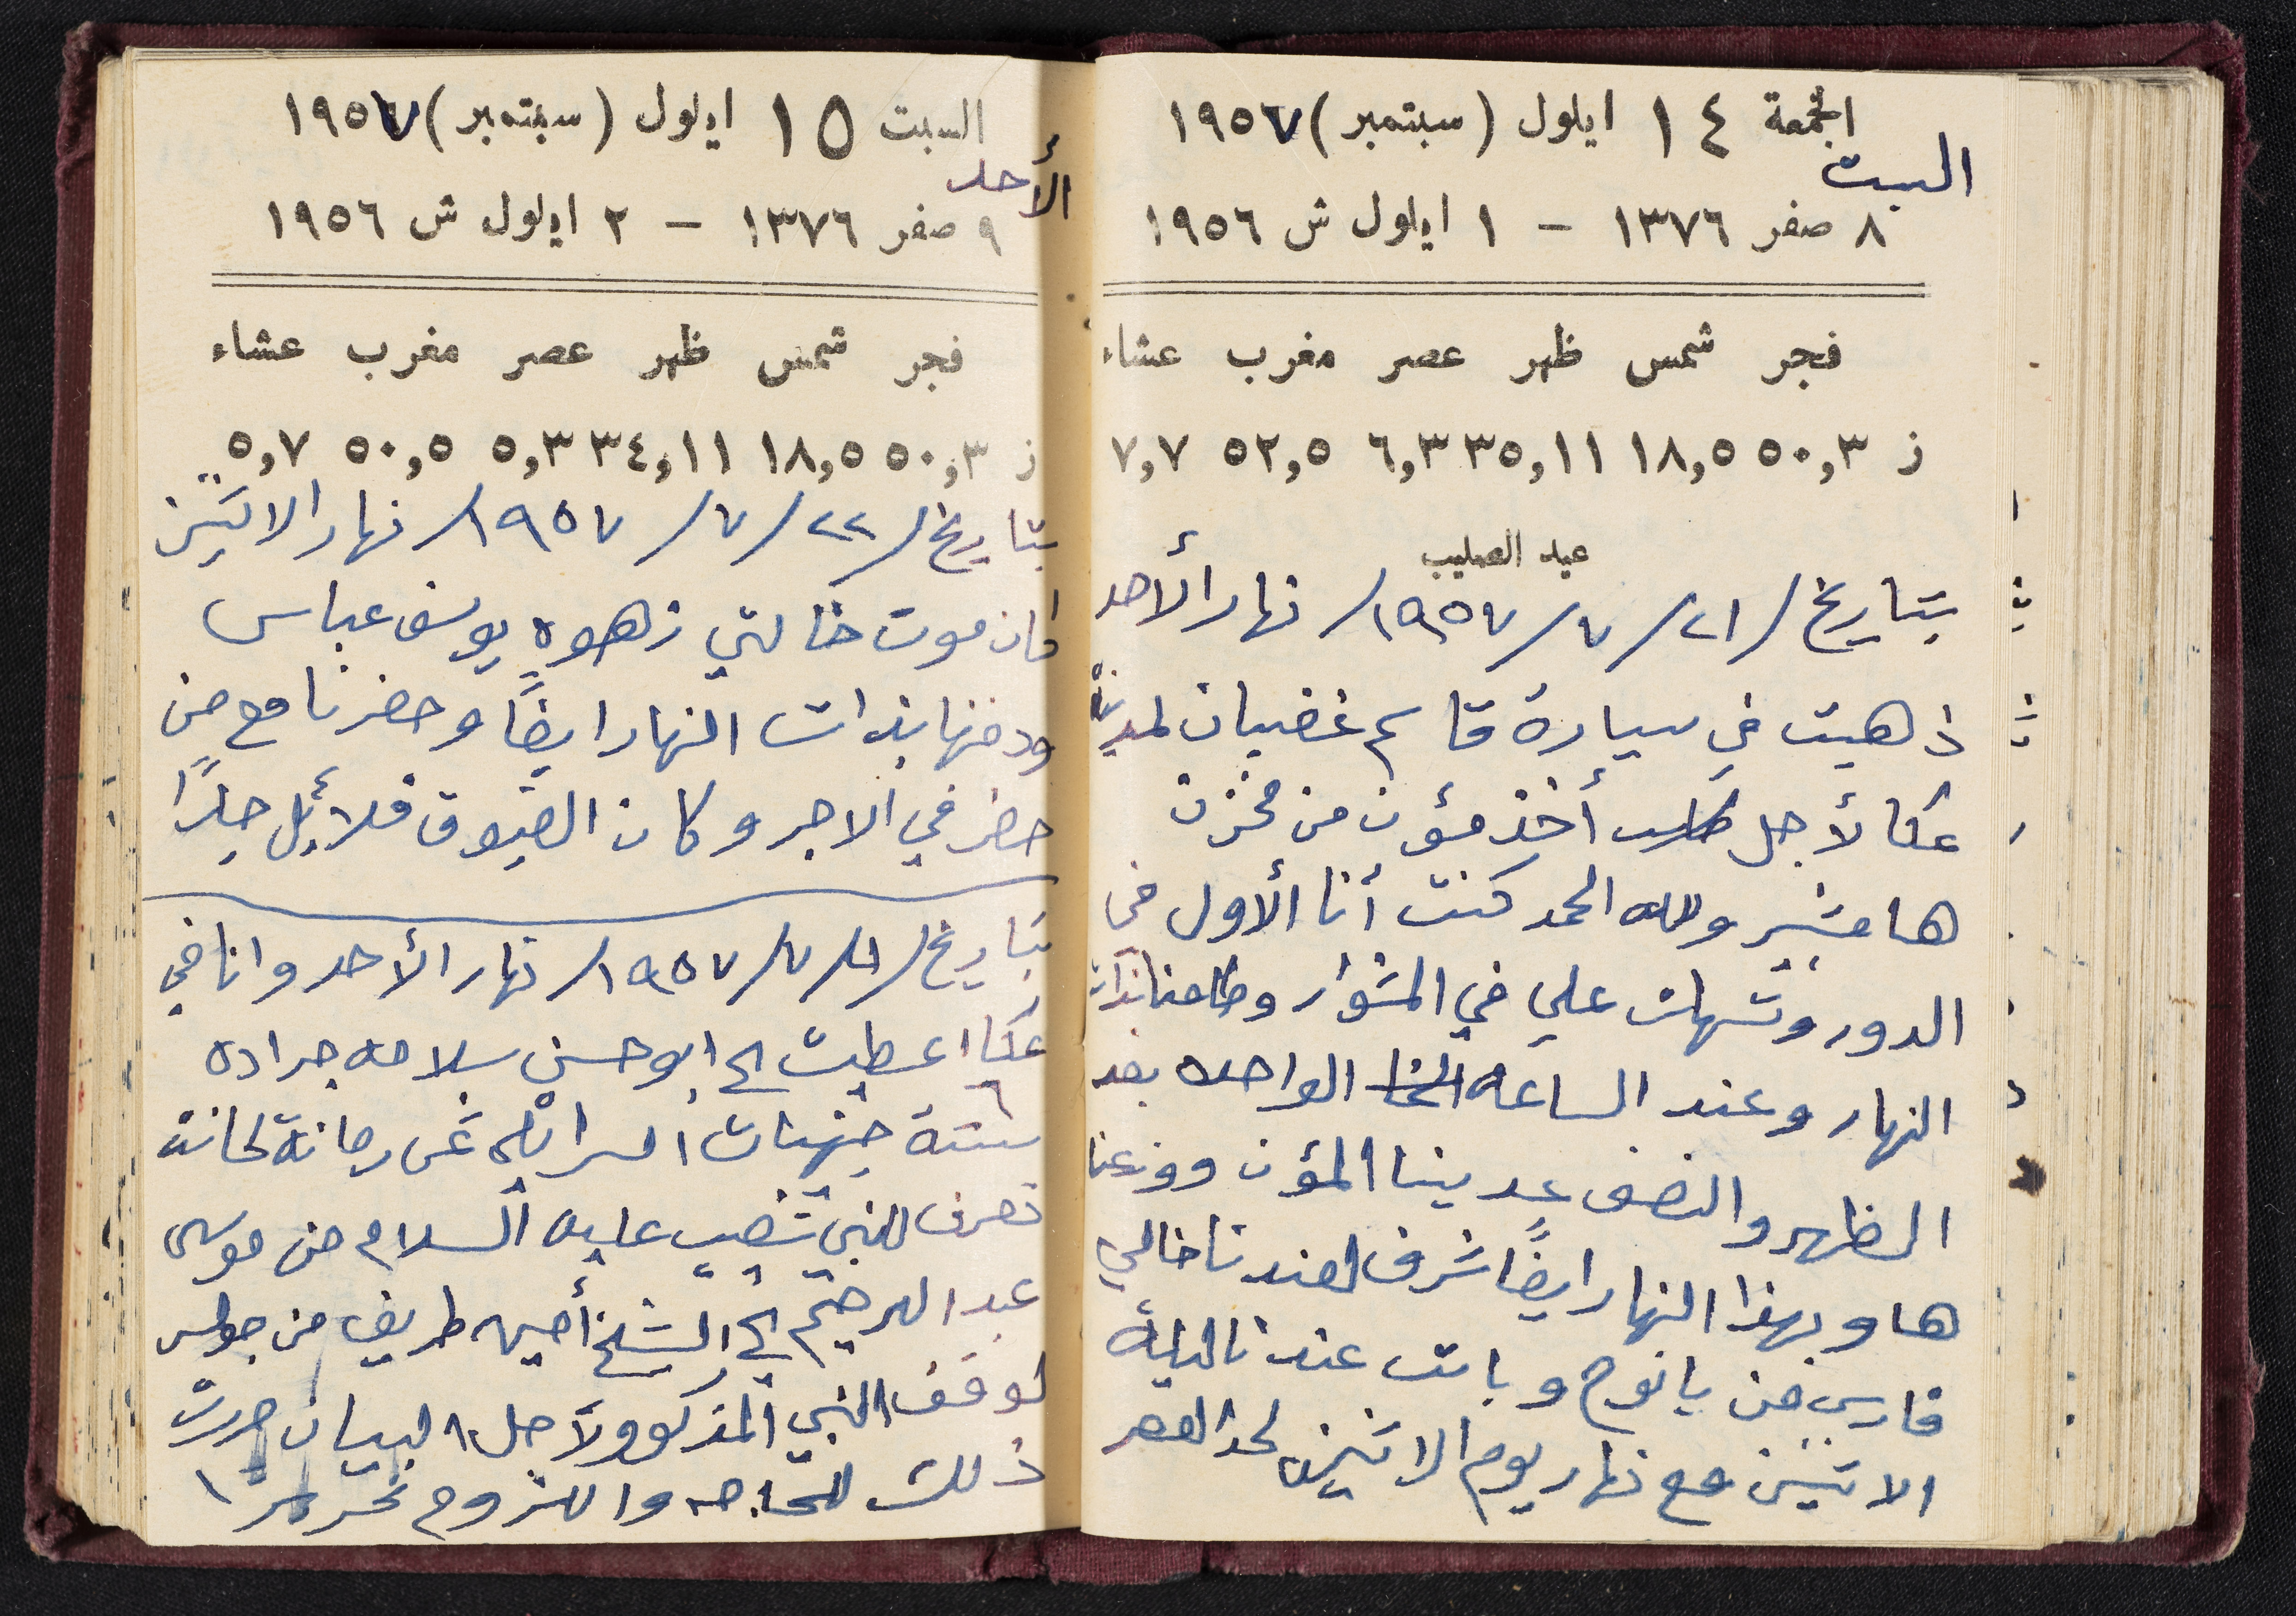 الجمعة ١٤ ايلول (سبتمبر) ١٩٥٧
السبت
٨ صفر ١٣٧٦ – ١ ايلول ش ١٩٥٦
فجر شمس ظهر عصر مغرب عشاء
ز ٥٠,٣ ١٨,٥ ٣٥,١١ ٦,٣ ٥٢,٥ ٧,٧
عيد الصليب
بتاريخ /٢١/٧/١٩٥٧/ نهار الأحد
ذهبت في سيارة قاسم غضبان لمدينة
عكا لأجل أخذ مؤن من مخزن
هامشبير ولله الحمد كنت أنا الأول في
الدور وتسهلت علي في المشوار وطلعنا بذات
النهار وعند الساعه الواحده بعد
الظهر والنصف عدينا المؤن ووزعنا
ها وبهذا النهار ايضاً شرف لعندنا خالي
فارس من يانوح وبات عندنا ليلة
الاثنين مع نهار يوم الاثنين لحد العصر
السبت ١٥ ايلول (سبتمبر) ١٩٥٧
الأحد
٩ صفر ١٣٧٦ – ٢ ايلول ش ١٩٥٦
فجر شمس ظهر عصر مغرب عشاء
ز ٥٠,٣ ١٨,٥ ٣٤,١١ ٥,٣ ٥٠,٥ ٥,٧
بتاريخ /٢٢/٧/١٩٥٧/ نهار الاثنين
كان موت خالتي زهوه يوسف عباس
ودفنها بذات النهار ايضاً وحضرنا مع من
حضر في الاجر وكان الضيوف قلائل جداً
بتاريخ /٢١/٧/١٩٥٧/ نهار الأحد وانا في
عكا اعطيت الى ابو حسن سلامه جراده
٦
ستة جنيهات اسرائليه عن رمانة لحانت
تعرف للنبي شعيب عليه السلام من موسى
عبد الرحيم الى الشيخ أمين طريف من جولس
لوقف النبي المذكور ولأجل البيان حررت
ذلك للحاجه واللزوم تحريراً